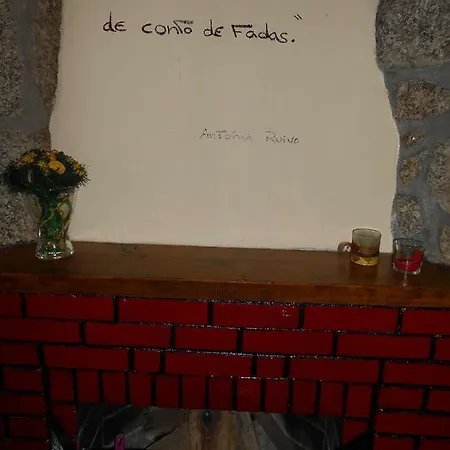 de conto de Fadas."
Antónia Ruivo